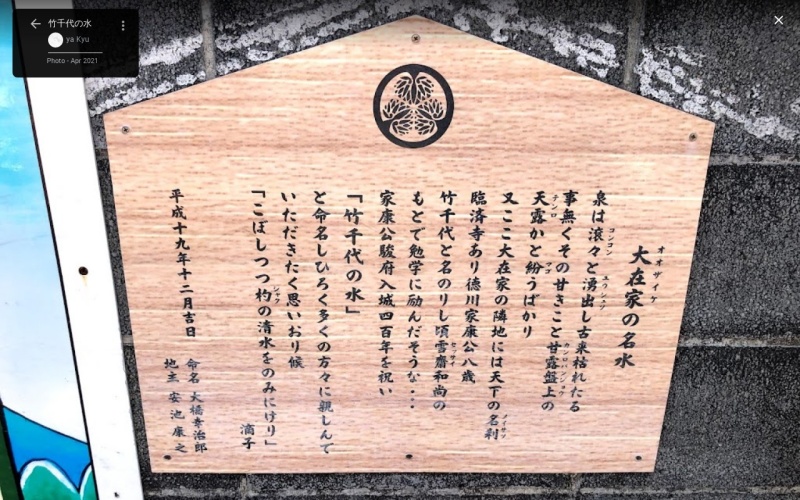 竹千代の水
ya Kyu
Photo - Apr 2021
大在家の名水
オオザイケ
泉は滾々と湧出し古来枯れたる
コンコン
ユウシュツ
事無くその甘きこと甘露盤上の
カンロバンジョウ
天露かと紛うばかり
テンロ
マゴ
又ここ大在家の隣地には天下の名刹
メイサツ
臨済寺あり徳川家康公八歳
竹千代と名のりし頃雪齋和尚の
セッサイ
もとで勉学に励んだそうな・・・
家康公駿府入城四百年を祝い
「竹千代の水」
と命名しひろく多くの方々に親しんで
いただきたく思いおり候
「こぼしつつ杓の清水をのみにけり」
シャク
滴子
平成十九年十二月吉日
命名 大橋幸治郎
地主 安池康之